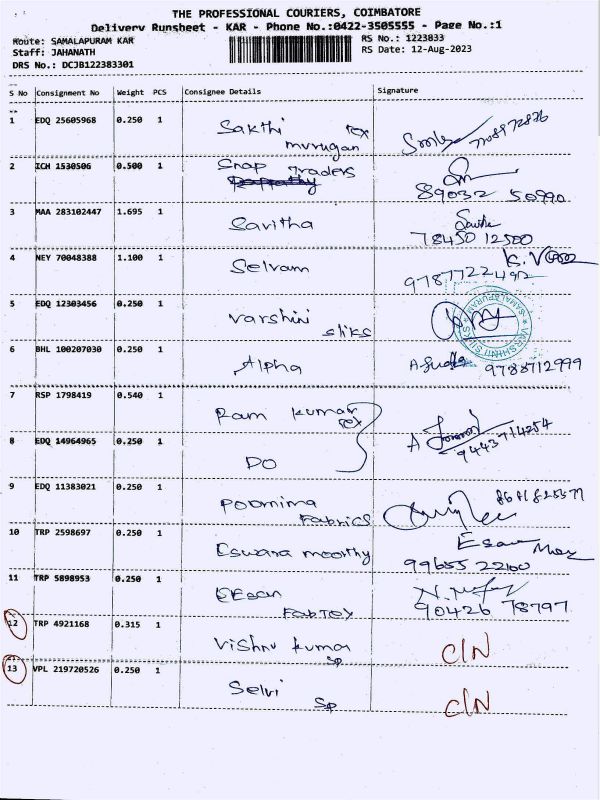 THE PROFESSIONAL COURIERS, COIMBATORE
Delivery Runsheet - KAR - Phone No.:0422-3505555 - Page No.:1
Route: SAMALAPURAM KAR
RS No.: 1223033
Staff: JAHANATH
RS Date: 12-Aug-2023
DRS No.: DCJB122383301
S No Consignment No Weight PCS Consignee Details Signature
1 EDQ 25605968 0.250 1 Sakthi tex
murugan
2 ICH 1530506 0.500 1 Snap Traders
89032 50990
3 MAA 283102447 1.695 1 Savitha
78450 12500
4 NEY 70048388 1.100 1 Selvam
9787722492
5 EDQ 12303456 0.250 1 varshini
silks
VARSHINI SILKS
SAMALAPURAM
6 BHL 100207030 0.250 1 Alpha 9788712999
7 RSP 1798419 0.540 1 Ram kumar
tex
8 EDQ 14964965 0.250 1 DO 9443714254
9 EDQ 11383021 0.250 1 Poornima
Fabrics
10 TRP 2598697 0.250 1 Eswara moorthy
99655 22100
11 TRP 5898953 0.250 1 Eksan
Fabtex
90426 78797
12 TRP 4921168 0.315 1 Vishnu kumar
SP
C/N
13 VPL 219720526 0.250 1 Selvi
SP
C/N